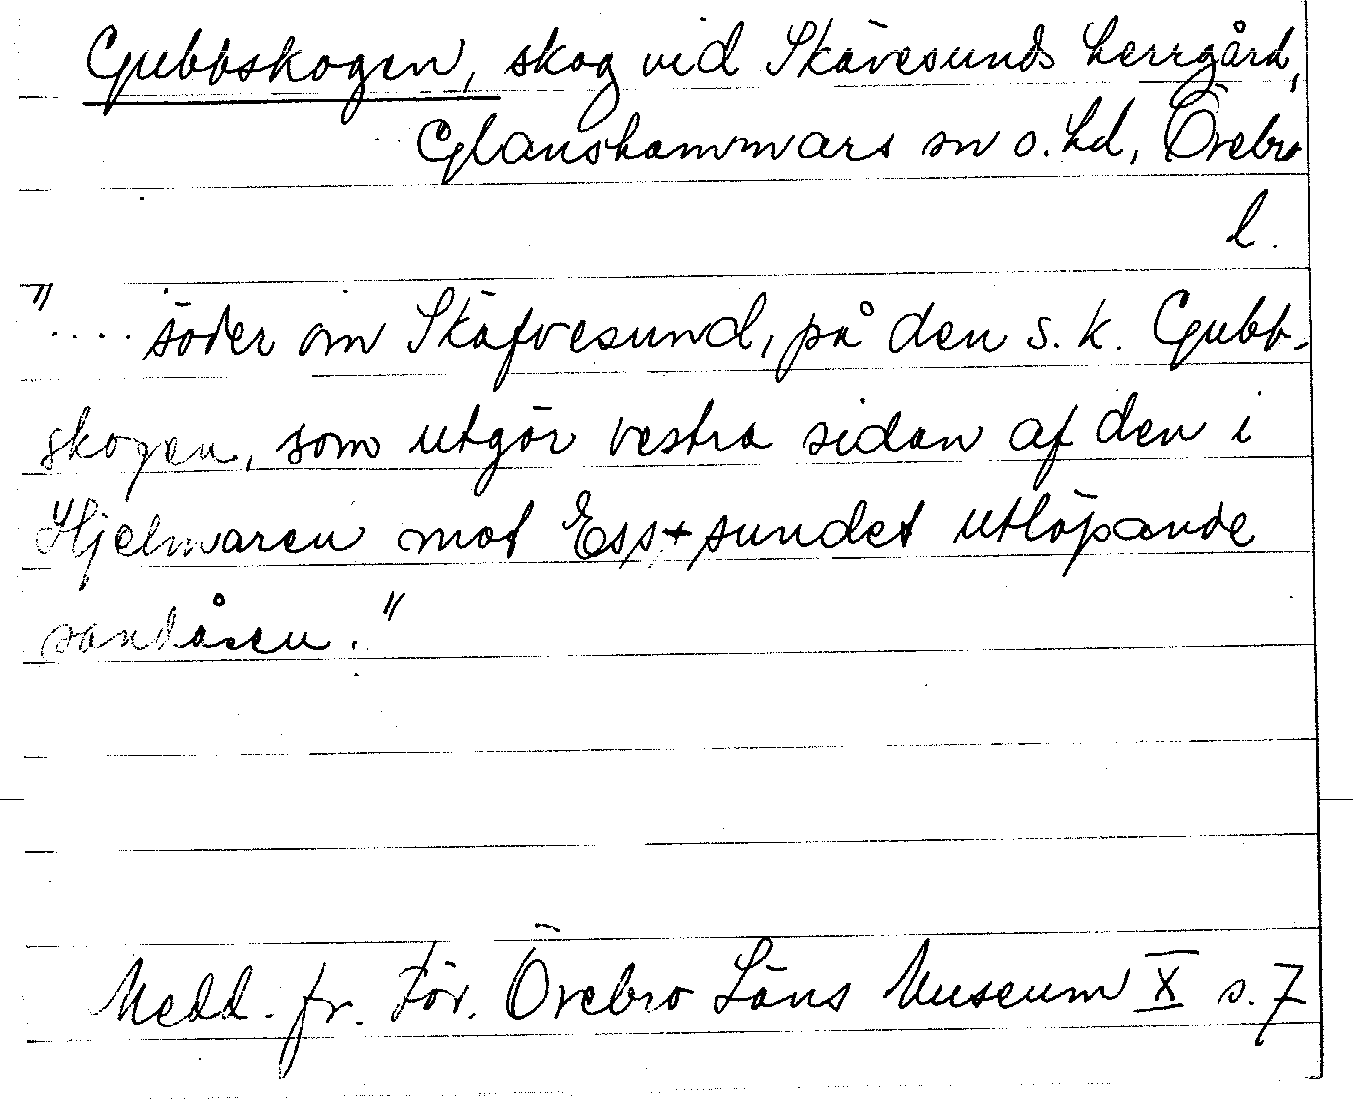 Gubbskogen, skog vid Skävesunds herrgård,
Glanshammars sn o. hd, Örebro
l.
".... söder om Skäfvesund, på den s.k. Gubb-
skogen, som utgör vestra sidan af den i
Hjelmaren mot Ess+sundet utlöpande
sandåsen."
Medd. fr. För. Örebro Läns Museum X s. 7